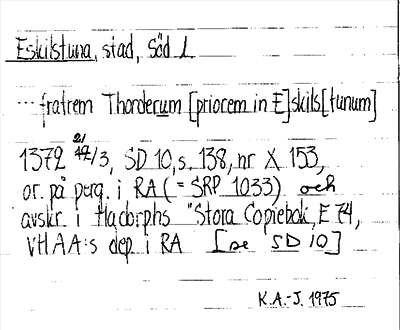 Eskilstuna, stad, Söd l
... fratrem Thorderum [priocem in E]skils[tunum]
21
1372 12/3, SD 10, s. 138, nr X 153,
or. på perg. i RA (= SRP 1033) och
avskr. i Hadorphs "Stora Copiebok, E 74,
VHAA:s dep. i RA [se SD 10]
K.A.-J. 1975